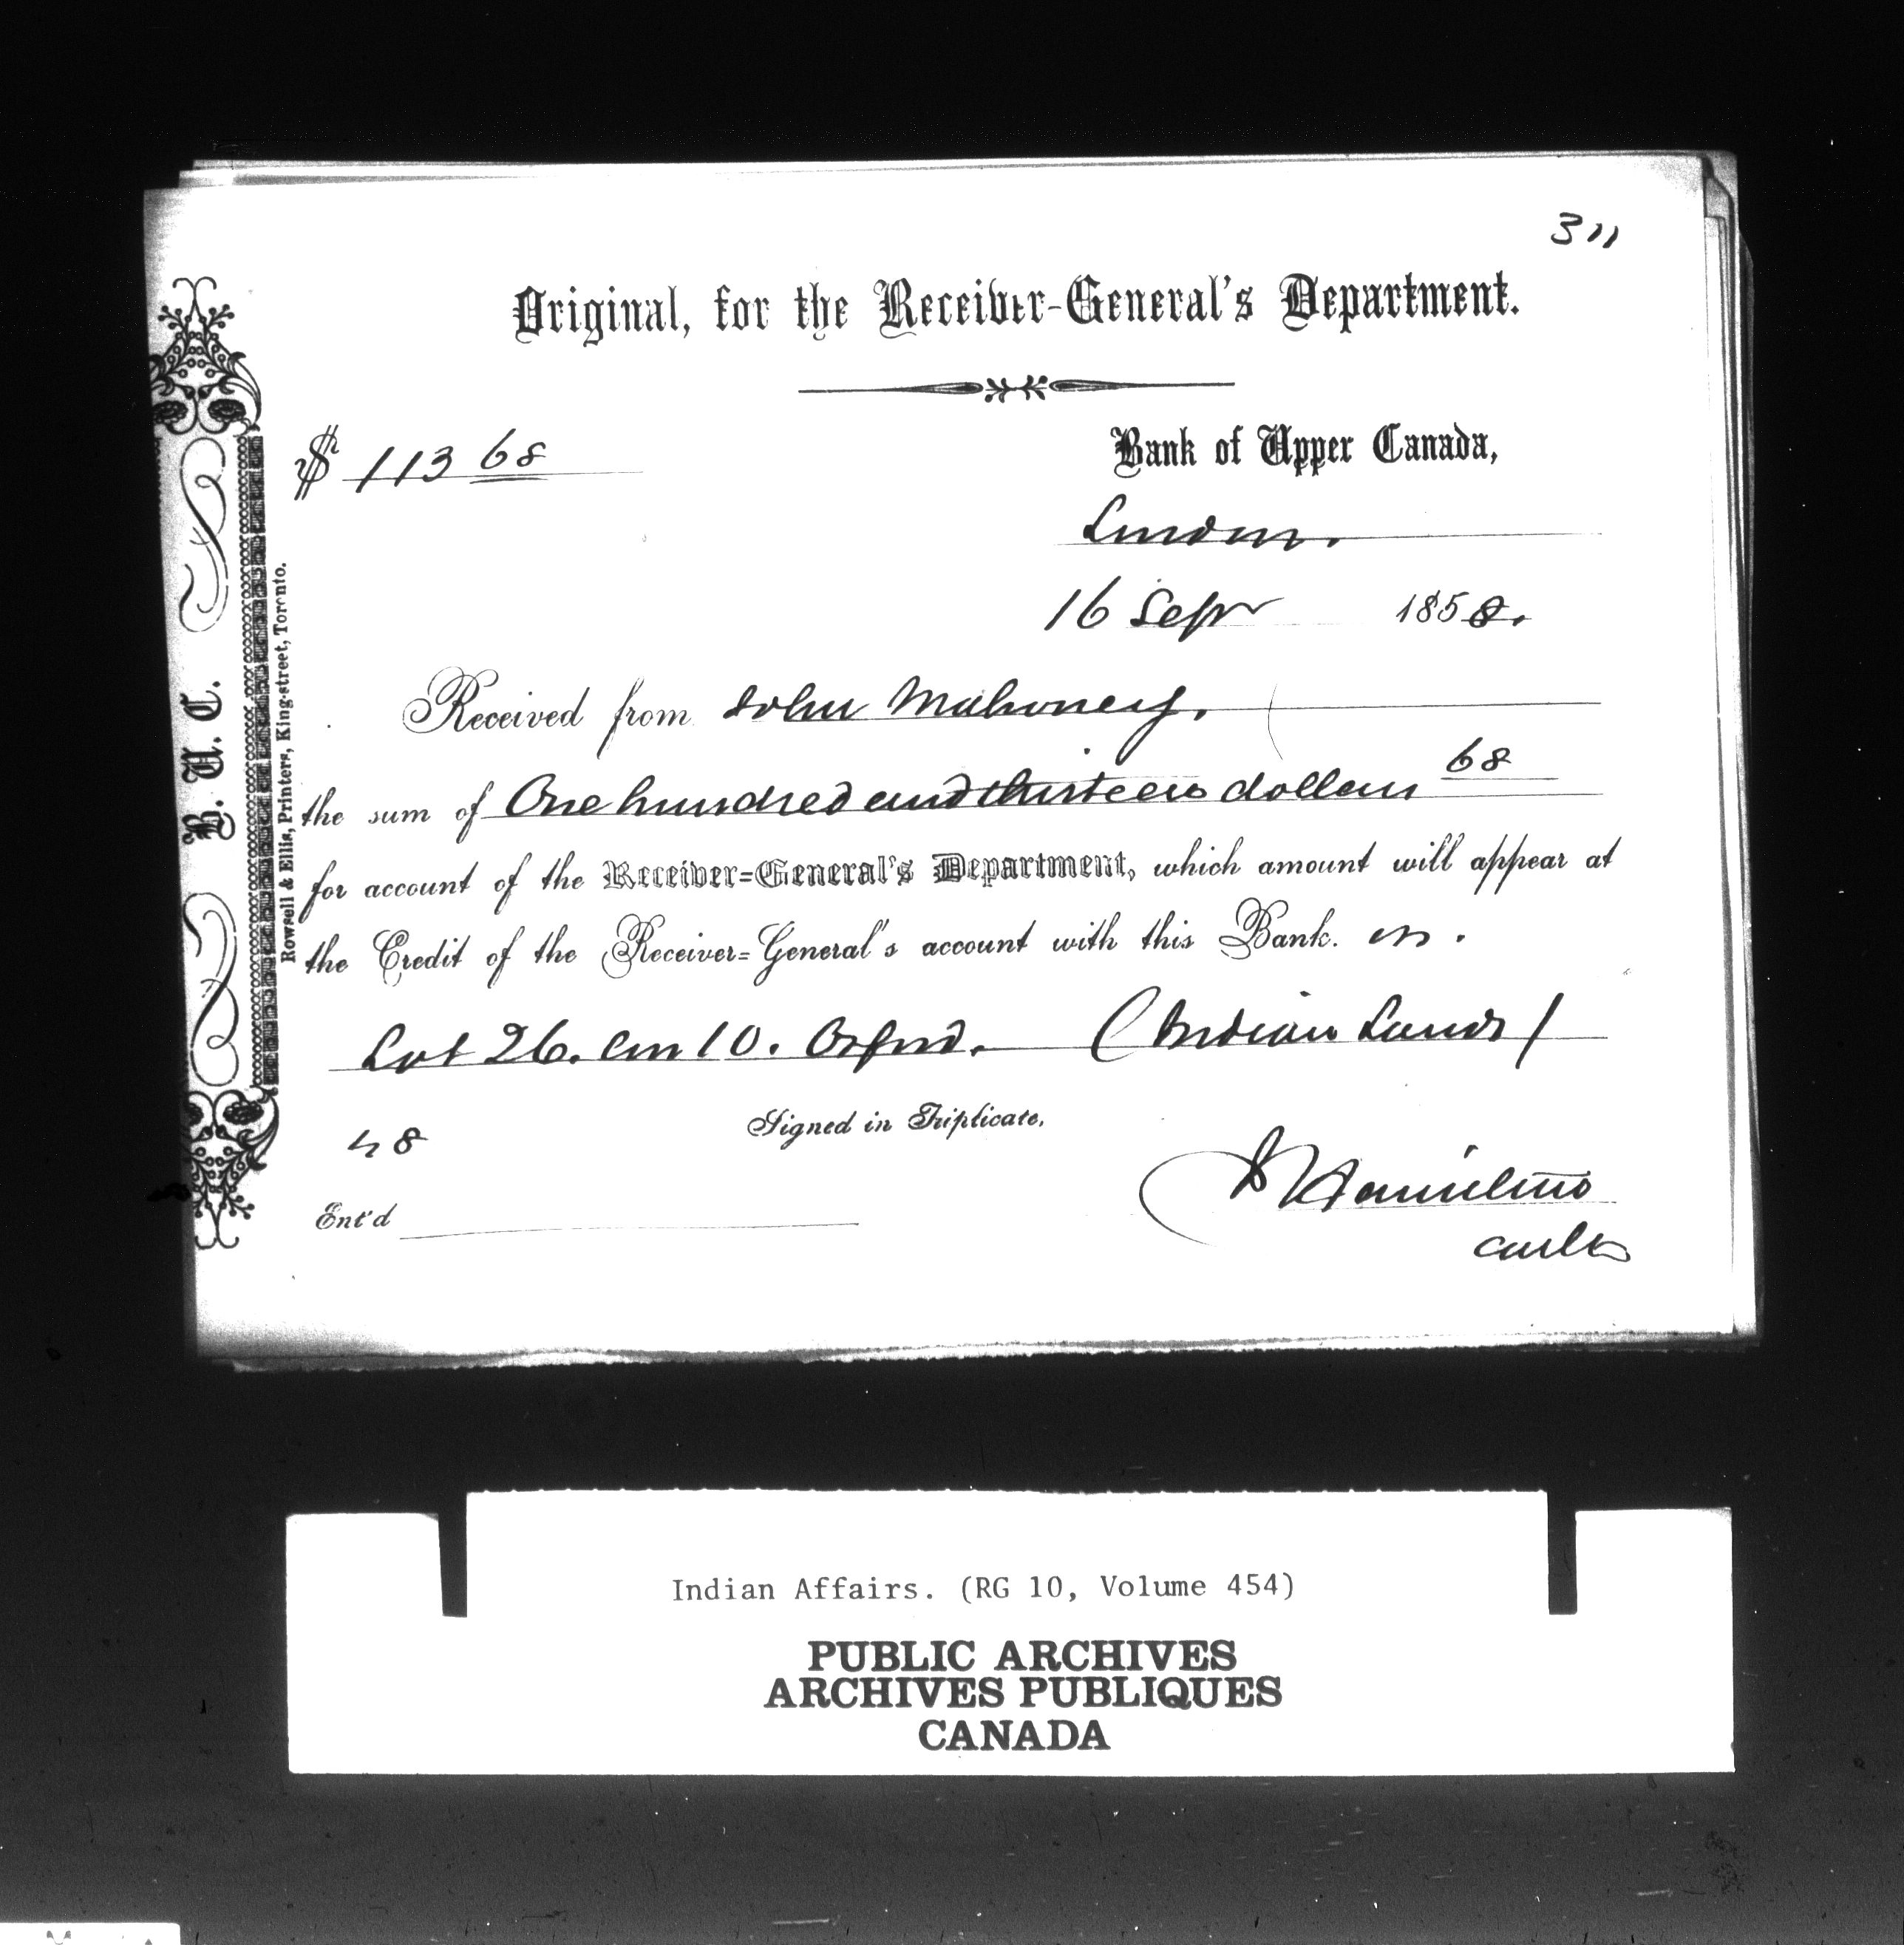 311
Original, for the Receiver-General's Department.
$ 113 68
Bank of Upper Canada,
London.
16 Sepr 1858.
Received from John Mahoney.
the sum of One hundred and thirteen dollars 68
for account of the Receiver=General's Department, which amount will appear at
the Credit of the Receiver=General's account with this Bank. on.
Lot 26. Con 10. Orford. (Indian Lands)
48
Signed in Triplicate,
Hamilton
Ent'd
B. U. C.
Rowsell & Ellis, Printers, King-street, Toronto.
Indian Affairs. (RG 10, Volume 454)
PUBLIC ARCHIVES
ARCHIVES PUBLIQUES
CANADA